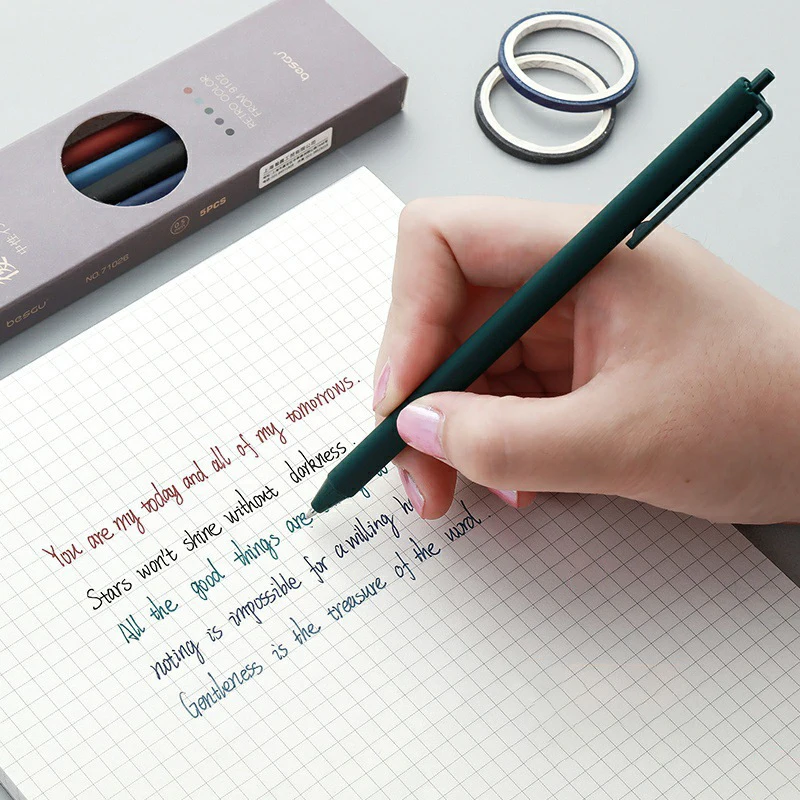 bescu
RETRO COLOR
FROM
0.5
5PCS
NO.7102B
bescu
You are my today and all of my tomorrows.
Stars won't shine without darkness.
All the good things are
noting is impossible for a willing
Gentleness is the treasure of the word.